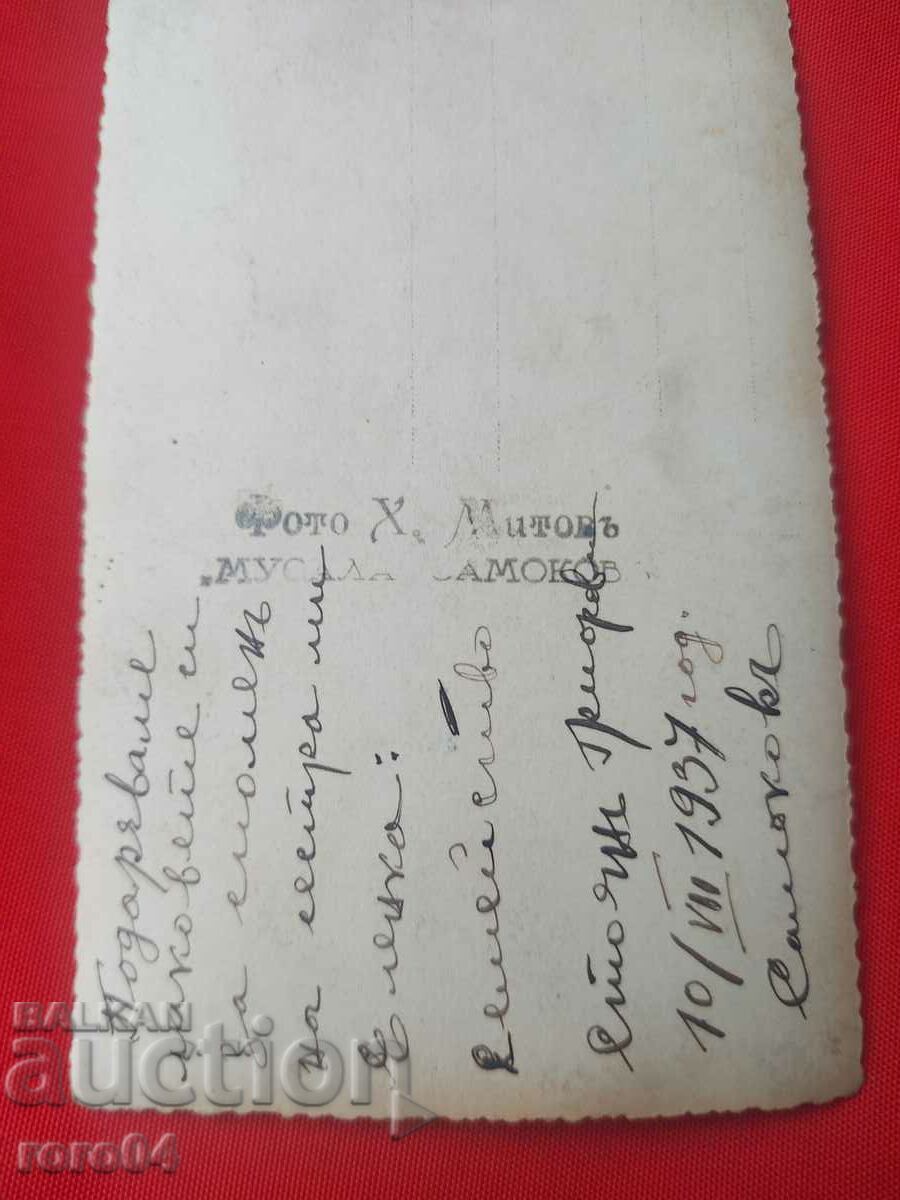 Фото Х. Митовъ
„МУСАЛА САМОКОВ
Подаряваме
ликовете си
За споменъ
на сестра ми
Еленка:
Семейство
Стоянъ Григорови
10/VIII 1937 год.
Самоковъ
BALKAN
auction
roro04